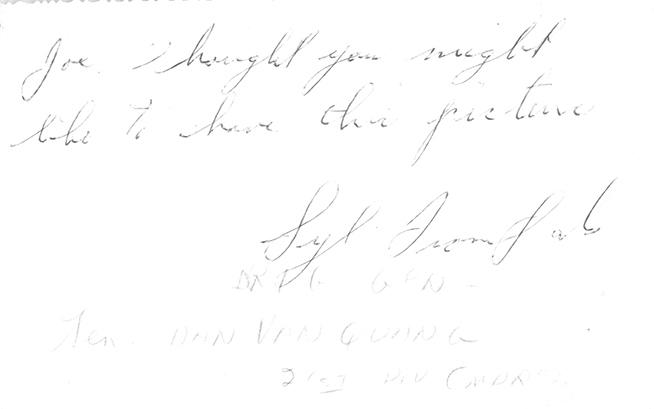 Joe, I thought you might
like to have this picture
Syl
BRIG GEN -
Gen. DAN VAN QUANG
21ST DIV CMDR